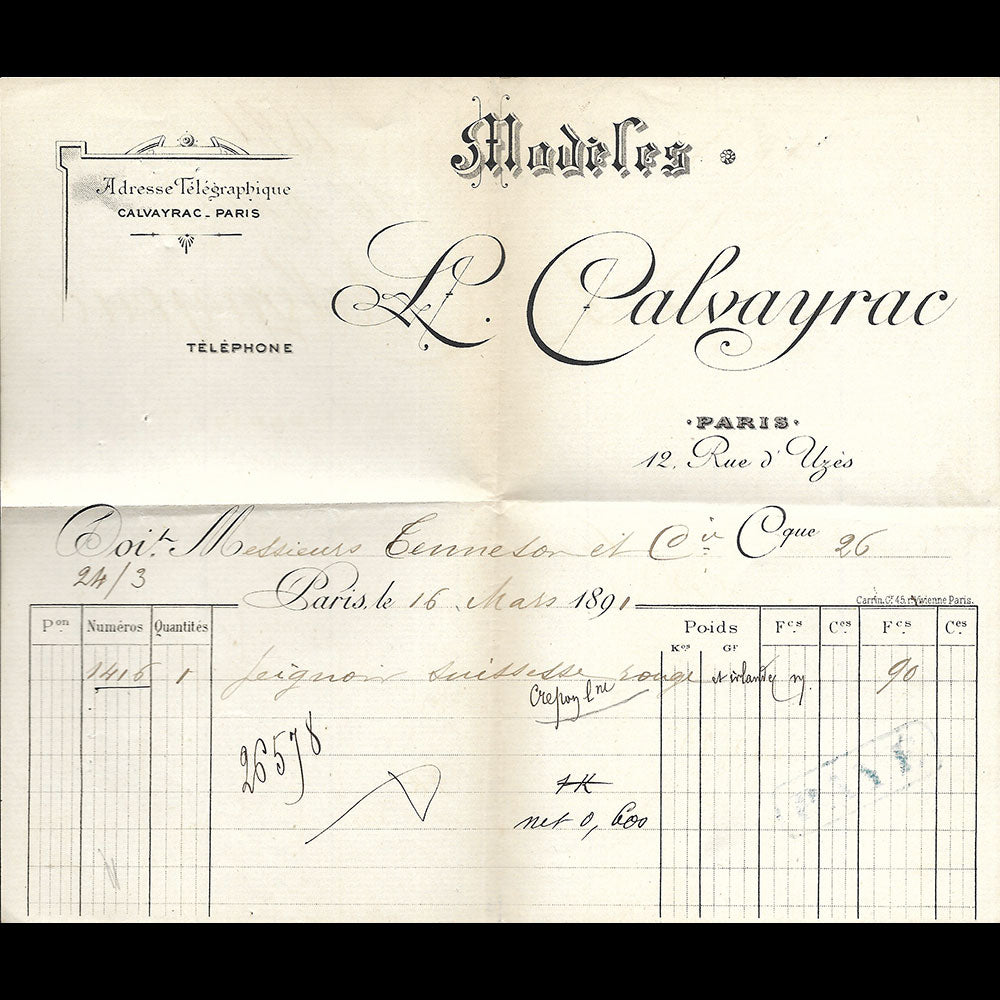 Modèles
Adresse Télégraphique
CALVAYRAC - PARIS
L. Calvayrac
TÉLÉPHONE
·PARIS·
12, Rue d'Uzès
Doit Messieurs Tenneson et Cie Cque 26
24/3
Paris, le 16 Mars 1891
Carrin, Cr 45, r. Vivienne Paris.
Pon Numéros Quantités Poids Fcs Ces Fcs Ces
Kos Gr
1416 1 peignoir suissesse rouge et irlande 90
Crepon lne
26578
1 K
net 0,600